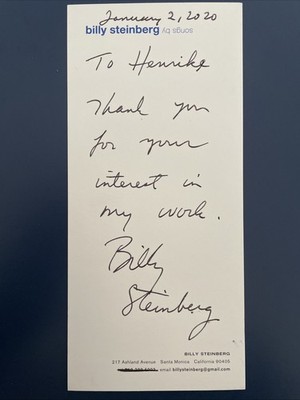 January 2, 2020
billy steinberg songs by
To Henrike
Thank you
for your
interest in
my work.
Billy
Steinberg
BILLY STEINBERG
217 Ashland Avenue Santa Monica California 90405
email billysteinberg@gmail.com